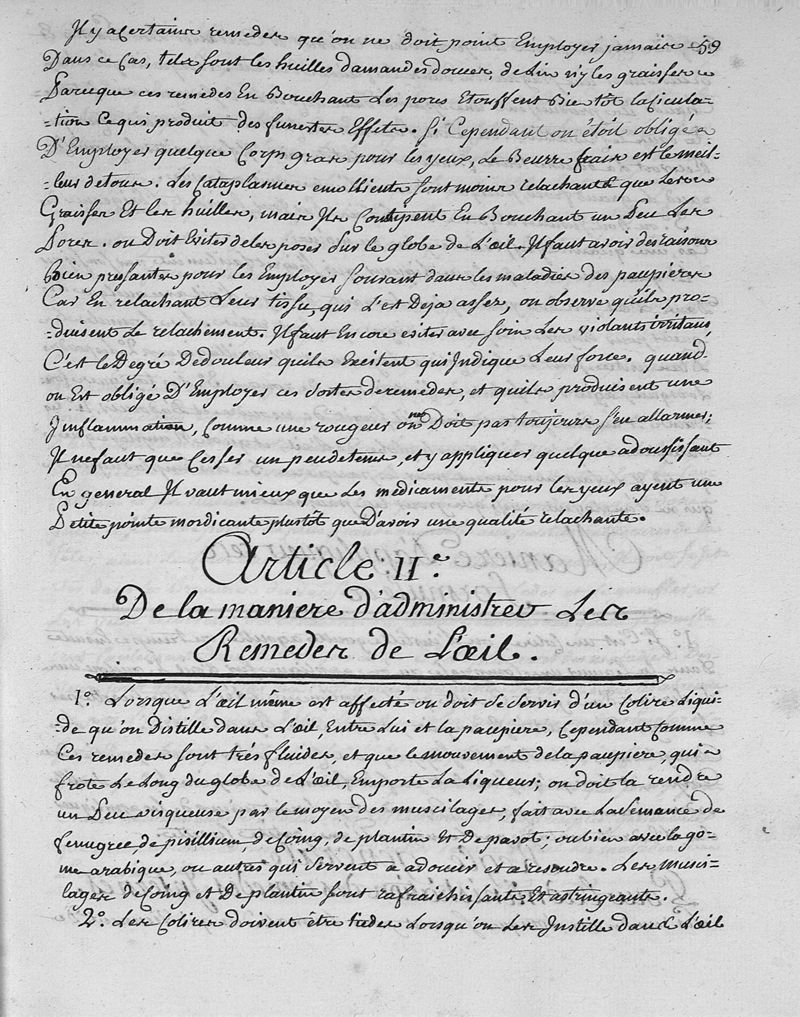 59
Il y a Certains remedes qu'on ne doit point Employer jamais
Dans ce Cas, tels sont les huilles damandes douces, de Lin n'y les graisses
Parceque ces remedes En Bouchant Les pores Etouffent Bien tôt la Cicula-
-tion Ce qui produit des funestes Effets. Si Cependant on étoit obligé
D'Employer quelque Corps gras pour les yeux, Le Beurre frais est le meil-
-leur de tous. Les Cataplasmes emollients sont moins relachants que Les
Graisses Et les huilles, mais Ils Constipent En Bouchant un Peu Les
Pores. on Doit Eviter de les poser Sur le globe de L'œil. Il faut avoir des raisons
Bien pressantes pour les Employer souvant dans les maladies des paupieres
Car En relachant Leur tissu, qui L'est Deja assez, on observe quils pro-
-duisent Le relachement. Il faut Encore eviter avec soin Les violants irritans,
C'est le Degré De douleur quils Excitent qui Indique Leur force. quand
on Est obligé D'Employer ces Sortes de remedes, et quils produisent une
Inflammation, Comme une rougeur on ne Doit pas toujours s'en allarmer;
Il ne faut que Cesser un peu de tems, et y appliquer quelque adoussissant
En general Il vaut mieux que Les medicaments pour les yeux ayent une
Petite pointe mordicante plustôt que D'avoir une qualité relachante.
Article II.e
De la maniere d'administrer Les
Remedes de L'œil.
1.º Lorsque L'œil même est affecté on doit Se Servir d'un Colire Liqui-
-de qu'on Distille dans L'œil, Entre Lui et la paupiere, Cependant Comme
Ces remedes sont très fluides, et que le mouvement de la paupiere, qui
frote Le Long du globe de L'œil, Emporte La Liqueur; on doit la rendre
un Peu visqueuse par le moyen des muscilages, fait avec La Semance de
fenugrec, de pisillium, de Coing, de plantin Et De pavot; ou bien avec la go-
me arabique, ou autres qui Servent a adoucir et a resoudre. Les musci-
lages de Coing et De plantin sont rafraichissants Et astringeants.
2.º Les Colires doivent être tiedes Lorsqu'on Les Instille dans L'œil